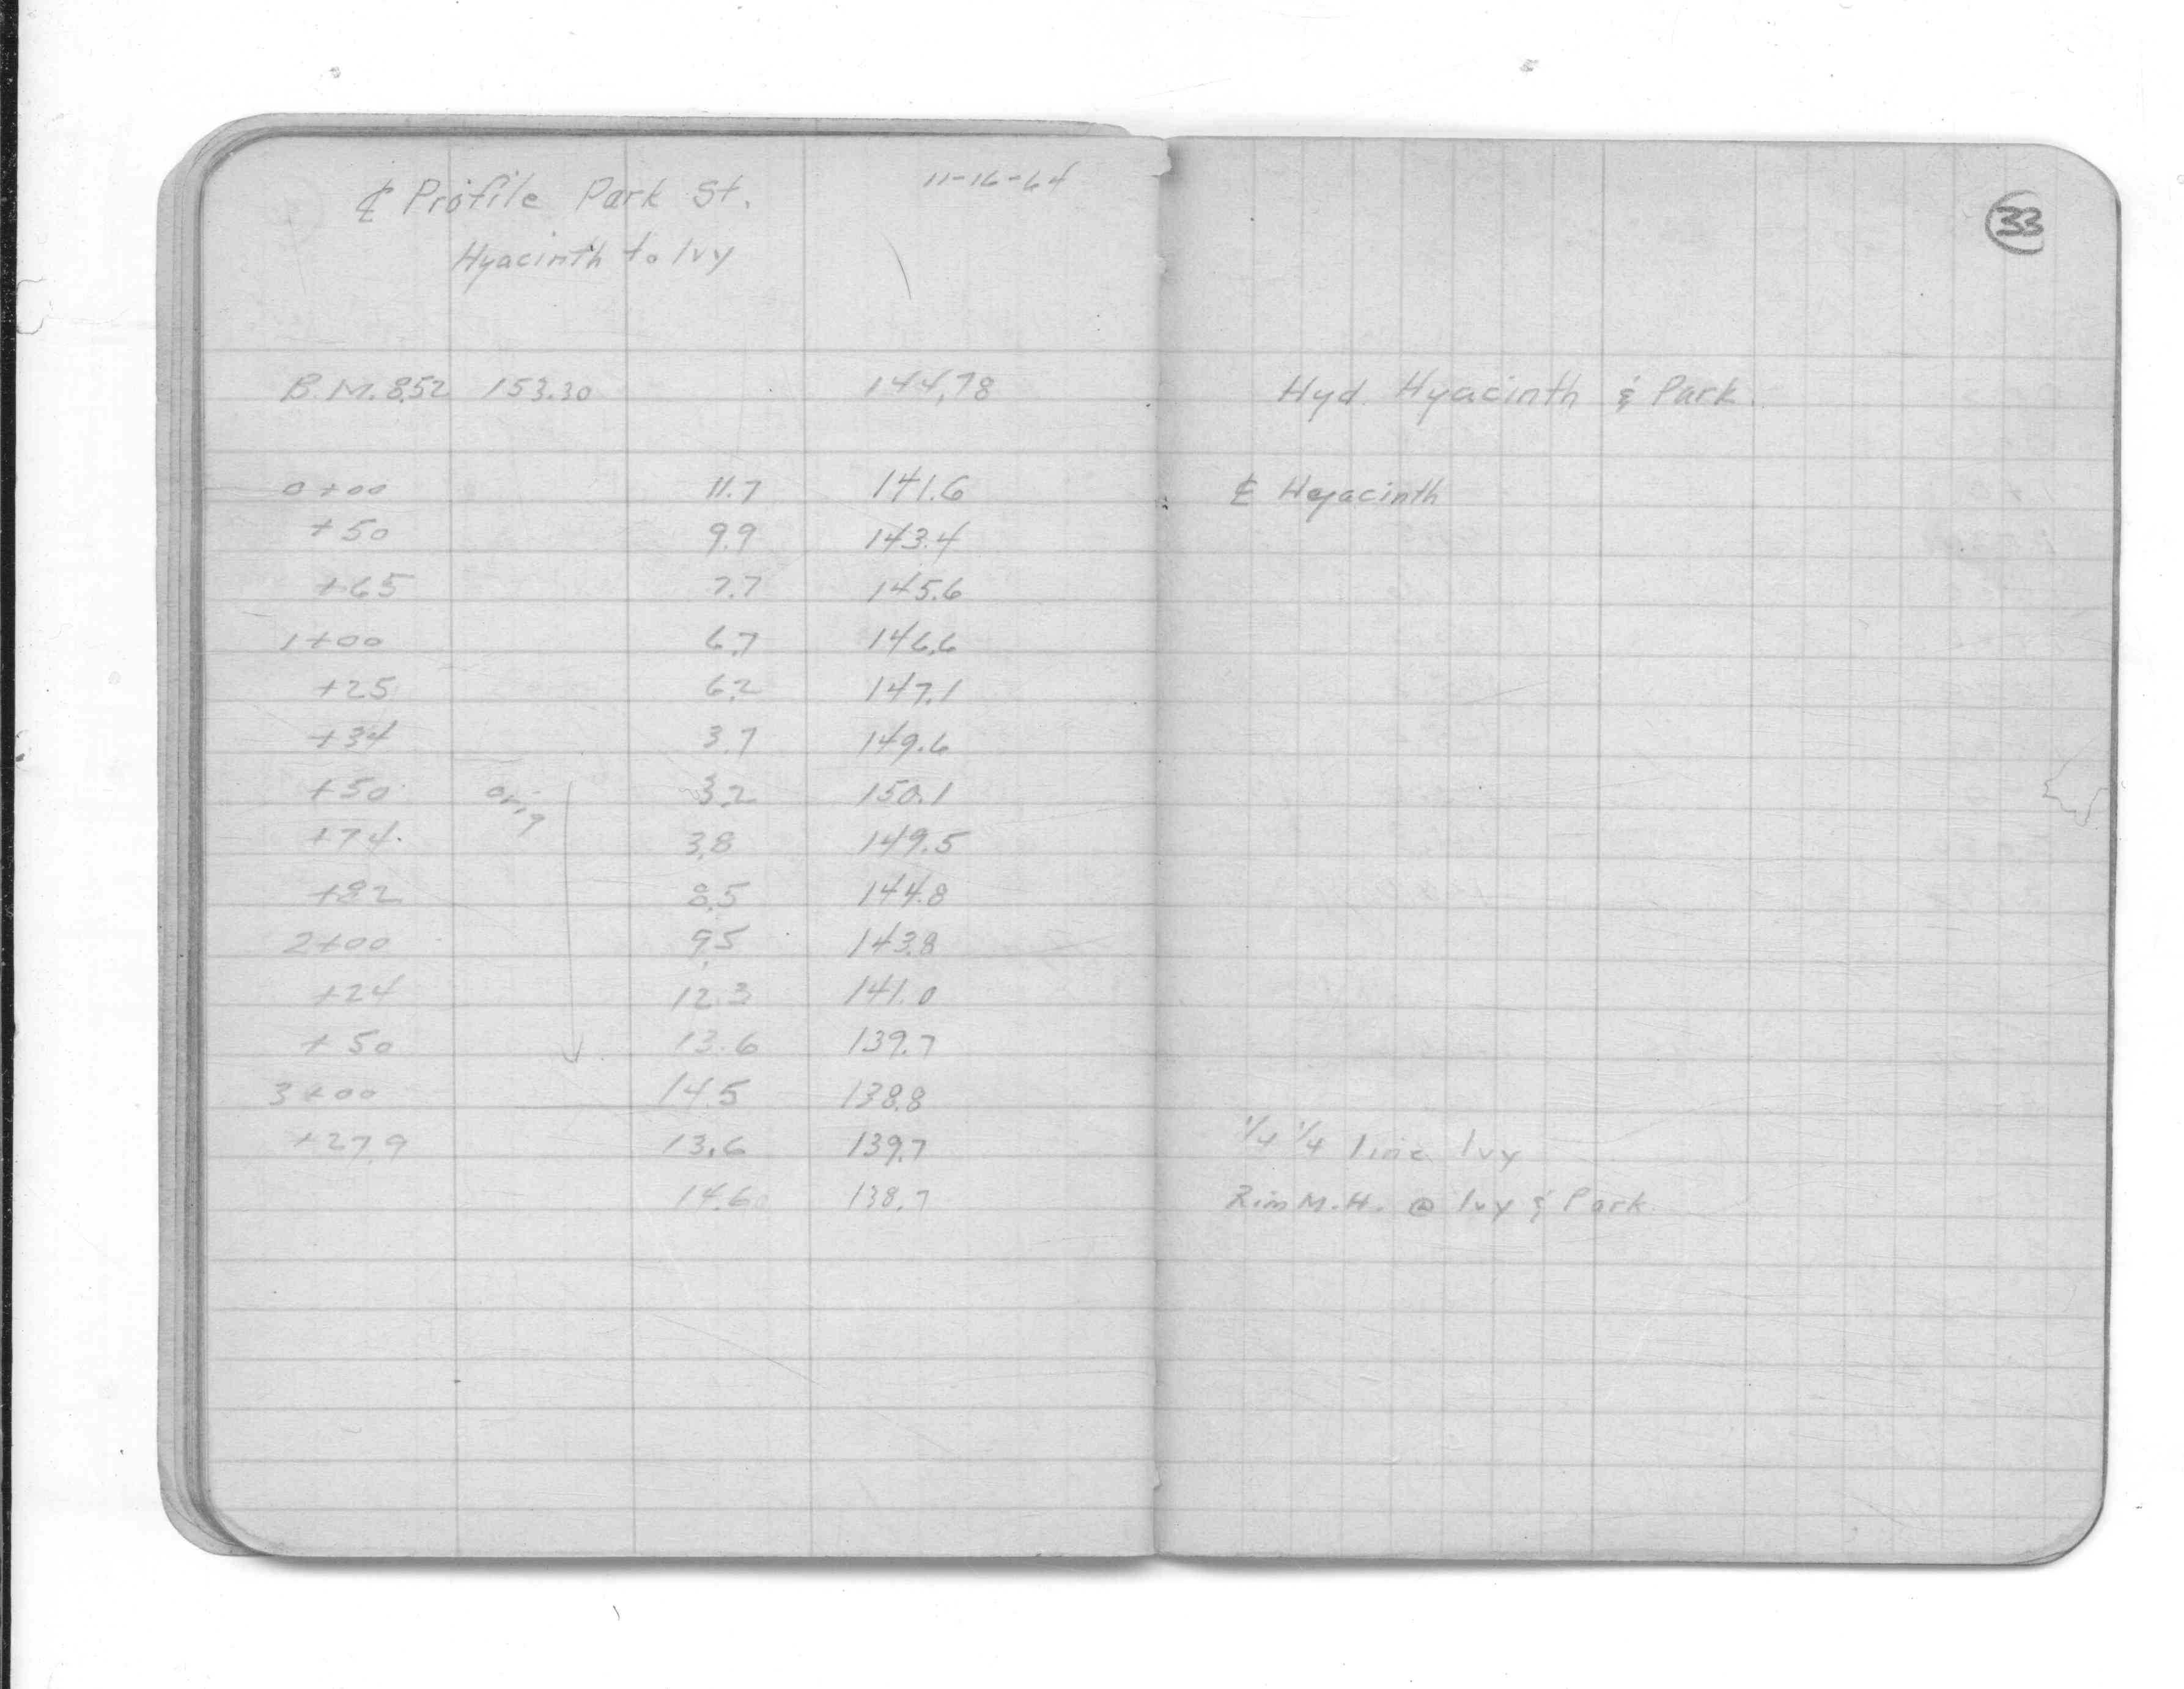 ℄ Profile Park St. 11-16-64
Hyacinth to Ivy
33
B.M. 8.52 153.30 144.78 Hyd. Hyacinth & Park
0+00 11.7 141.6 ℄ Hyacinth
+50 9.9 143.4
+65 7.7 145.6
1+00 6.7 146.6
+25 6.2 147.1
+34 3.7 149.6
+50 orig 3.2 150.1
+74 3.8 149.5
+82 8.5 144.8
2+00 9.5 143.8
+24 12.3 141.0
+50 13.6 139.7
3+00 14.5 138.8
+27.9 13.6 139.7 1/4 1/4 line Ivy
14.60 138.7 Rim M.H. @ Ivy & Park